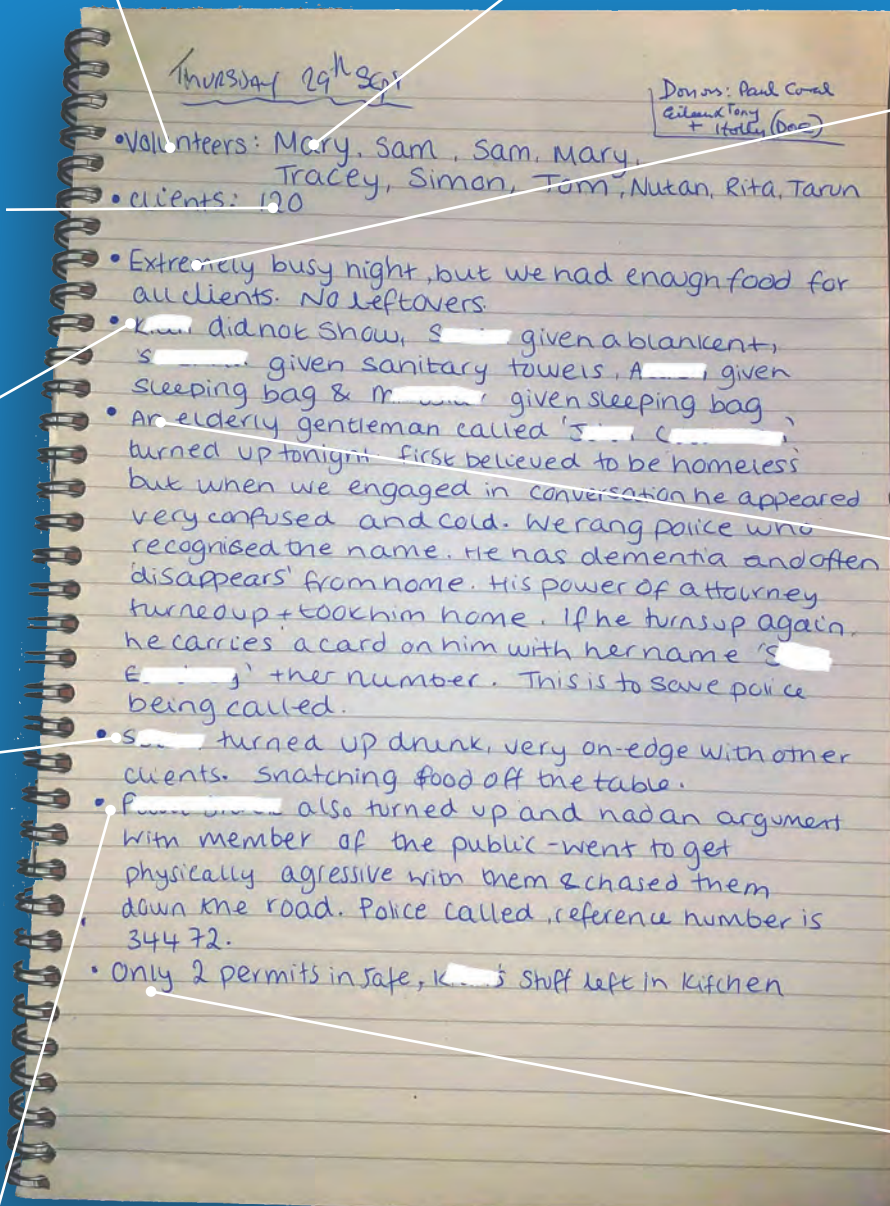 Thursday 29th Sept
Donors: Paul
Eileen & Tony
+ Holly (Dog)
• Volunteers: Mary, Sam, Sam, Mary,
Tracey, Simon, Tom, Nutan, Rita, Tarun
• clients: 120
• Extremely busy night, but we had enough food for
all clients. No leftovers.
• K did not show, S given a blankent,
S given sanitary towels, A given
sleeping bag & M given sleeping bag
• An elderly gentleman called 'J C '
turned up tonight first believed to be homeless
but when we engaged in conversation he appeared
very confused and cold. We rang police who
recognised the name. He has dementia and often
'disappears' from home. His power of attourney
turned up + took him home. If he turns up again,
he carries a card on him with her name 'S
E ' + her number. This is to save police
being called.
• S turned up drunk, very on-edge with other
clients. Snatching food off the table.
• P also turned up and had an argument
with member of the public - went to get
physically agressive with them & chased them
down the road. Police called, reference number is
34472.
• Only 2 permits in safe, K 's stuff left in kitchen